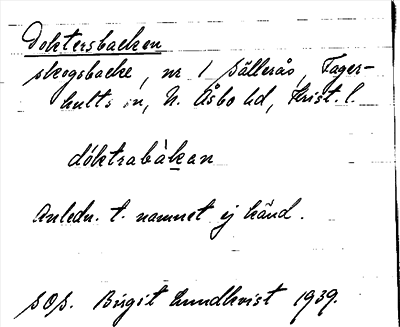 Doktersbacken
skogsbacke, nr 1 Sällerås, Fager-
hults sn, N. Åsbo hd, Krist. l.
dóktrabàkan
Anledn. t. namnet ej känd.
SOS. Birgit Lundkvist 1939.